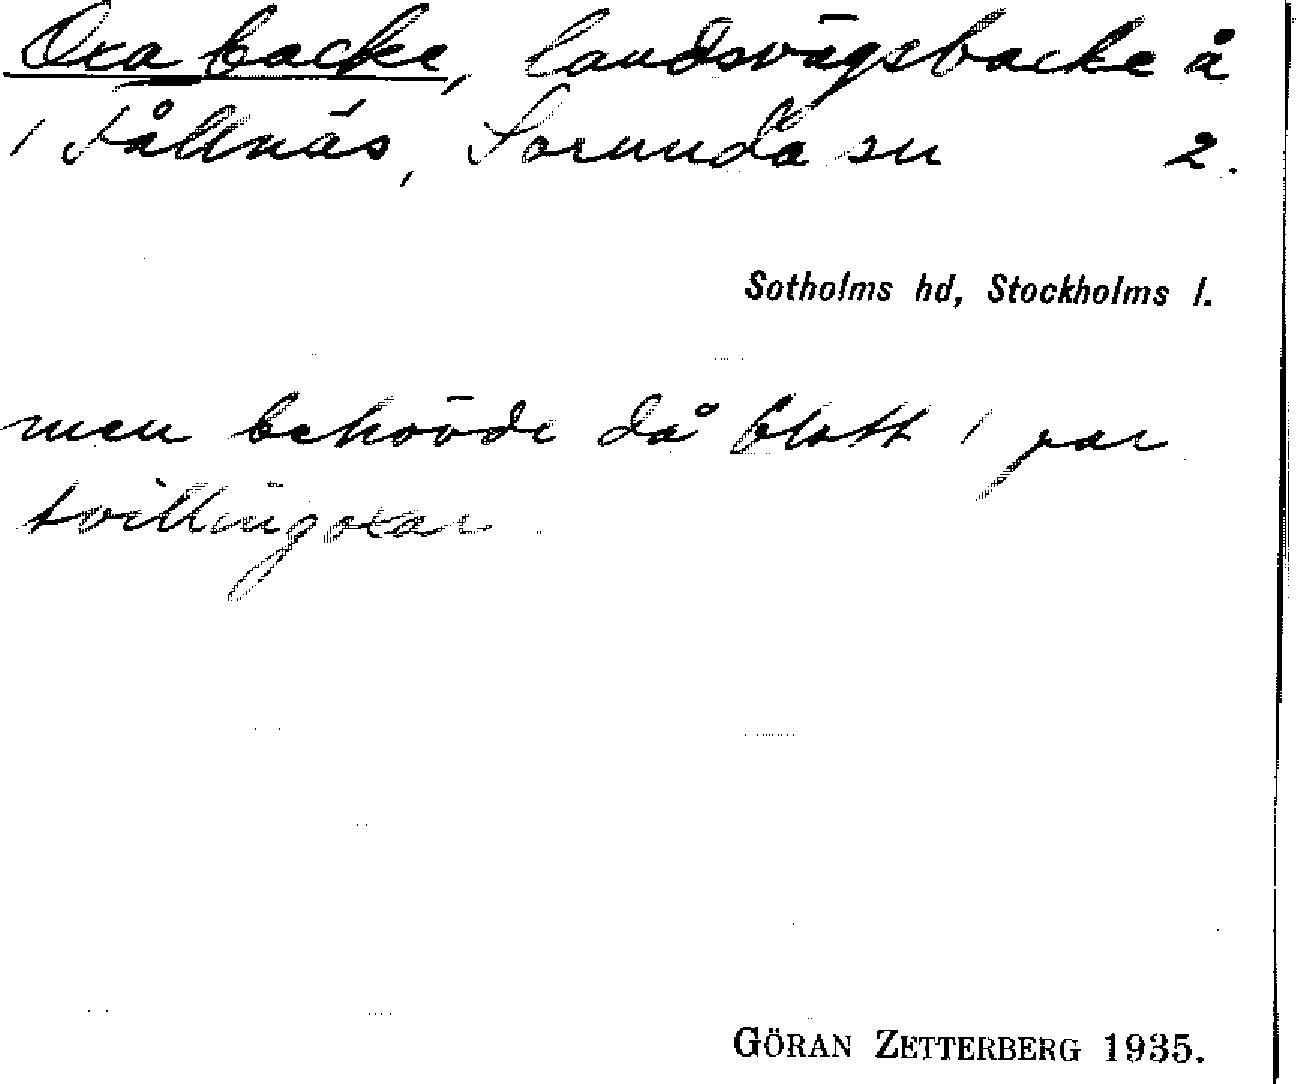 Oxa backe, landsvägsbacke å
1 Fållnäs, Sorunda sn 2.
Sotholms hd, Stockholms l.
men behövde då blott 1 par
tvillingoxar
GÖRAN ZETTERBERG 1935.